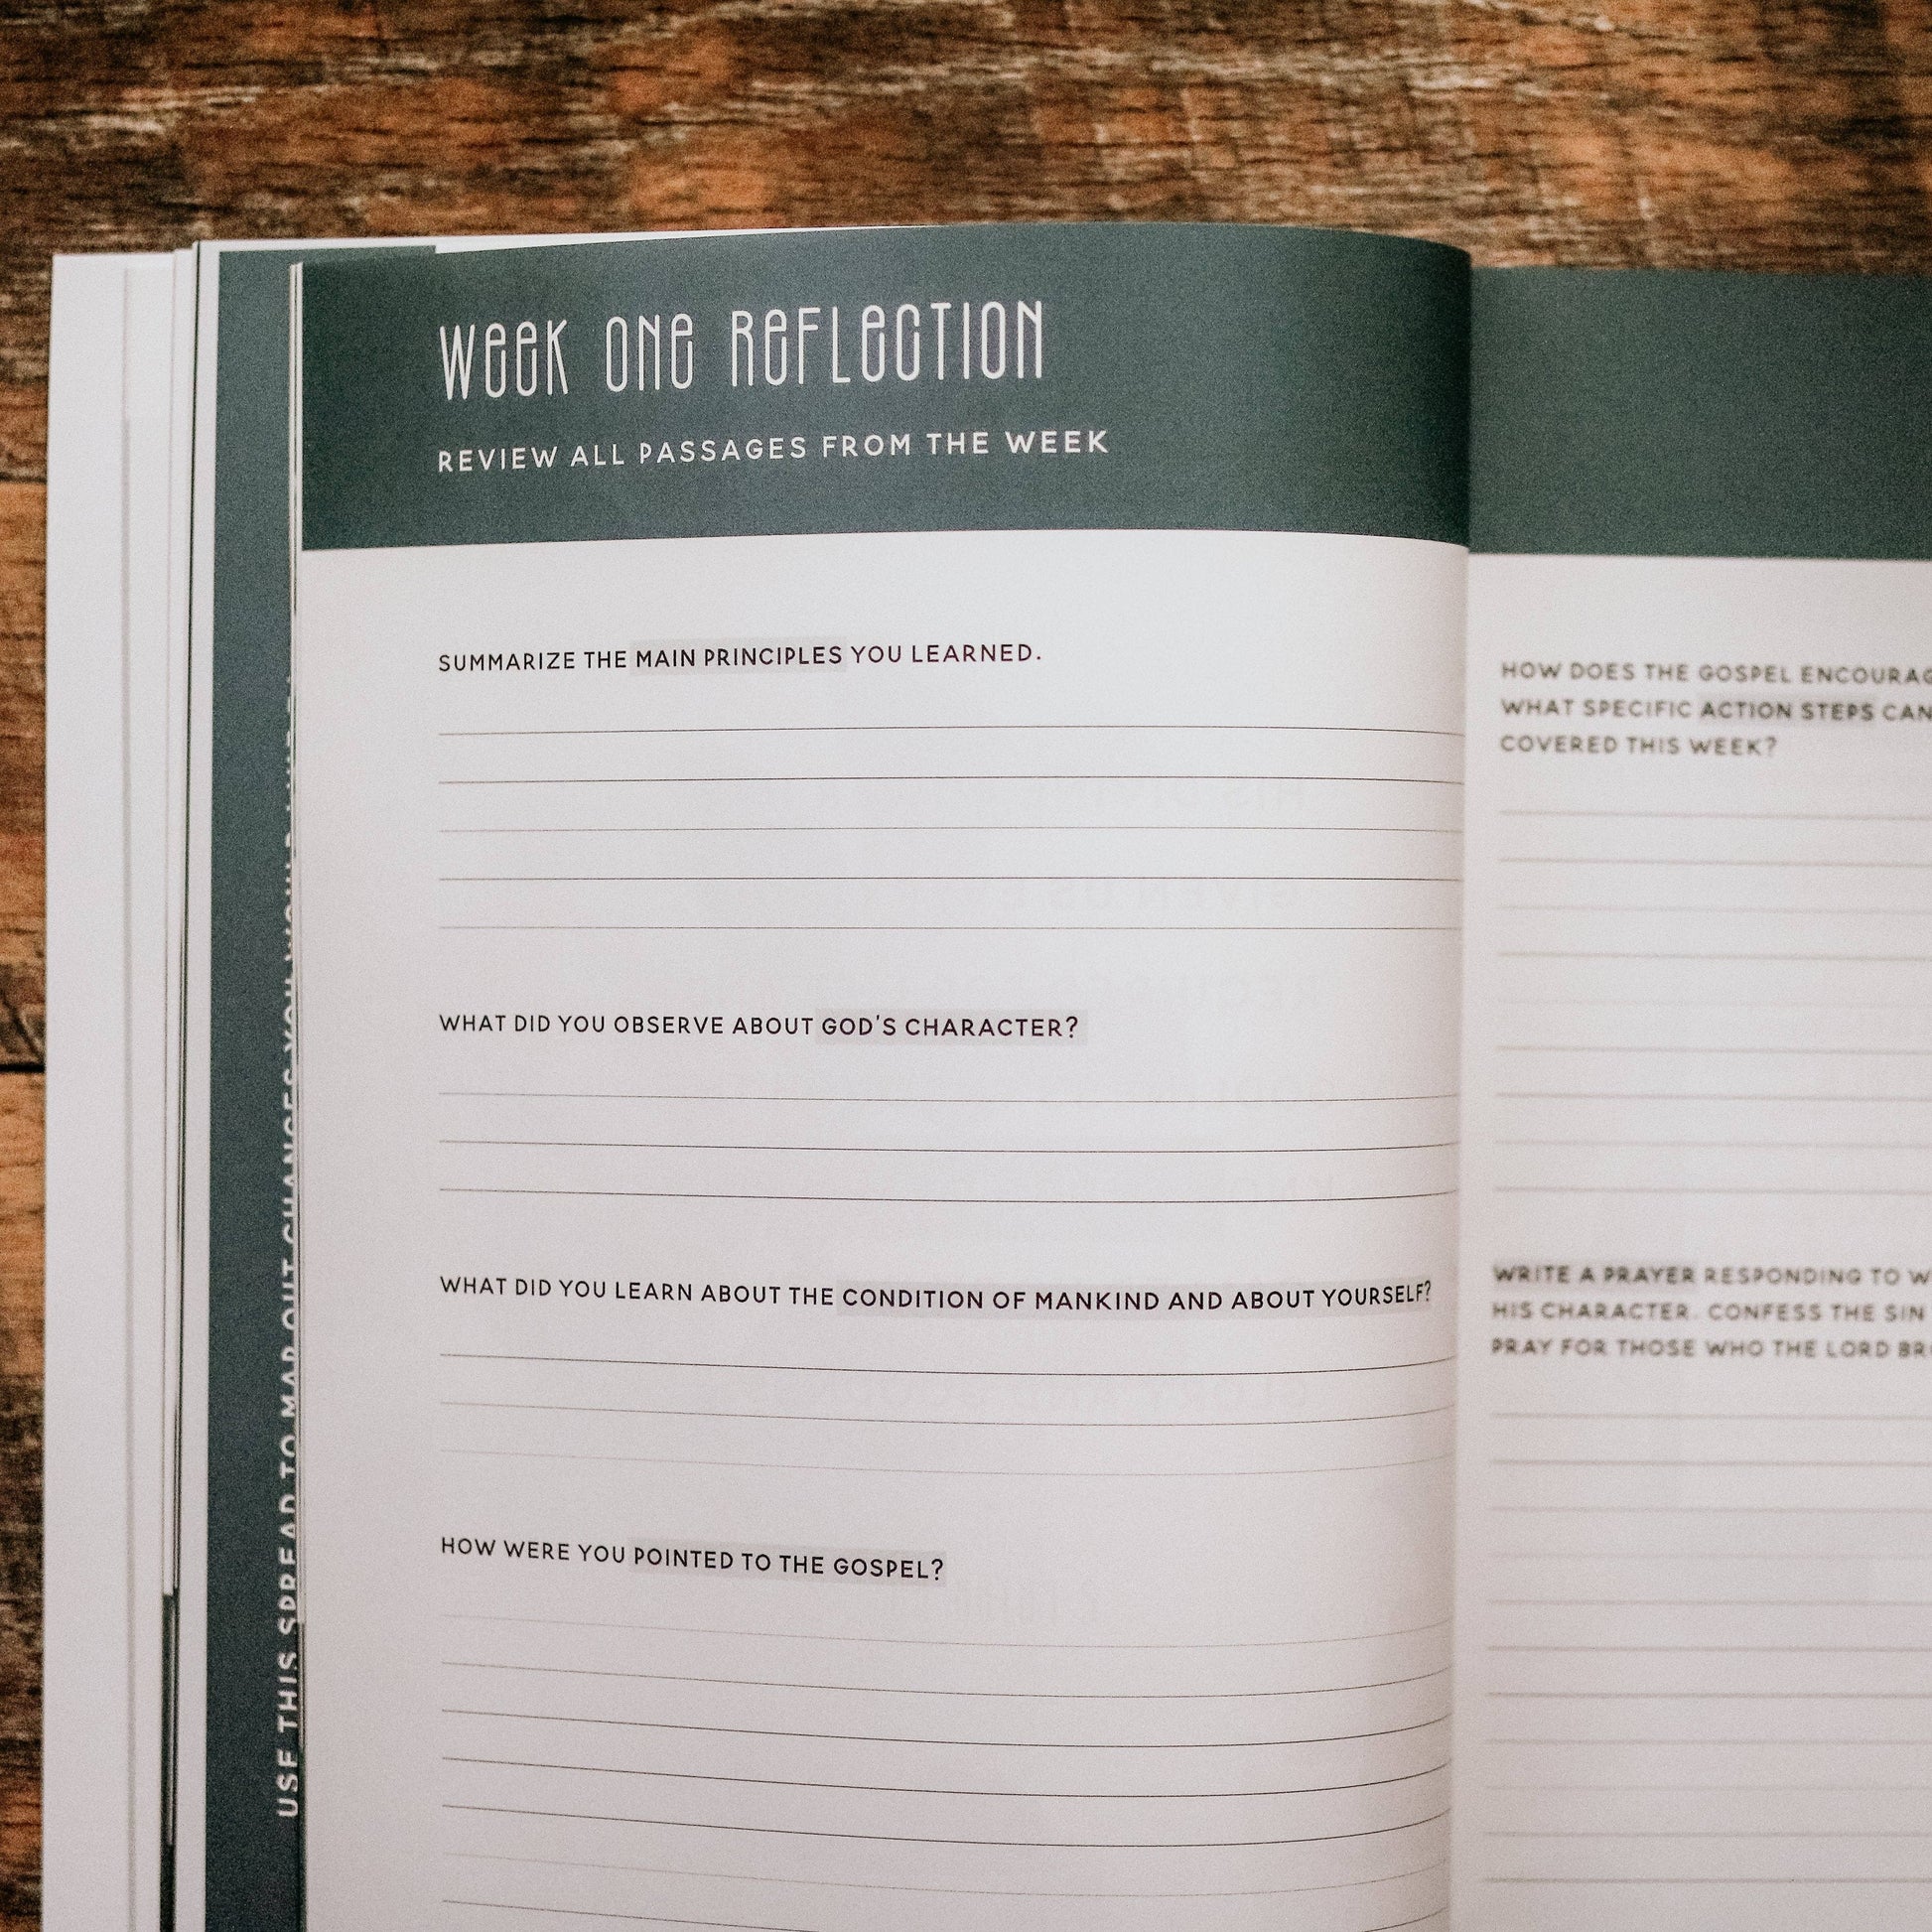 WEEK ONE REFLECTION
REVIEW ALL PASSAGES FROM THE WEEK
SUMMARIZE THE MAIN PRINCIPLES YOU LEARNED.
WHAT DID YOU OBSERVE ABOUT GOD'S CHARACTER?
WHAT DID YOU LEARN ABOUT THE CONDITION OF MANKIND AND ABOUT YOURSELF?
HOW WERE YOU POINTED TO THE GOSPEL?
HOW DOES THE GOSPEL
WHAT SPECIFIC ACTION STEPS CAN
COVERED THIS WEEK?
WRITE A PRAYER RESPONDING TO
HIS CHARACTER. CONFESS THE SIN
PRAY FOR THOSE WHO THE LORD
USE THIS SPREAD TO MAP OUT CHANGES YOU WOULD